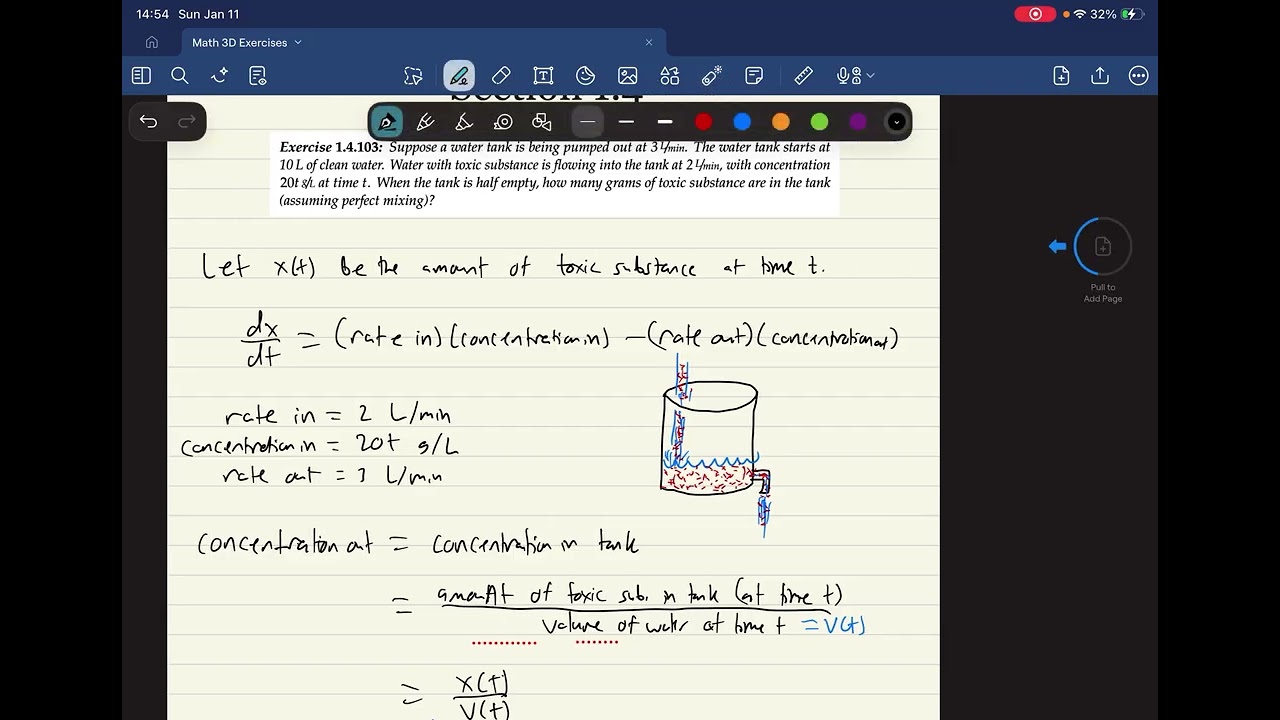 14:54 Sun Jan 11
32%
Math 3D Exercises
Section 1.4
Exercise 1.4.103: Suppose a water tank is being pumped out at 3 L/min. The water tank starts at
10 L of clean water. Water with toxic substance is flowing into the tank at 2 L/min, with concentration
20t g/L at time t. When the tank is half empty, how many grams of toxic substance are in the tank
(assuming perfect mixing)?
Pull to
Add Page
Let x(t) be the amount of toxic substance at time t.
dx/dt = (rate in)(concentration in) - (rate out)(concentration out)
rate in = 2 L/min
concentration in = 20t g/L
rate out = 3 L/min
concentration out = concentration in tank
= amount of toxic sub. in tank (at time t)
volume of water at time t = V(t)
= x(t)
V(t)